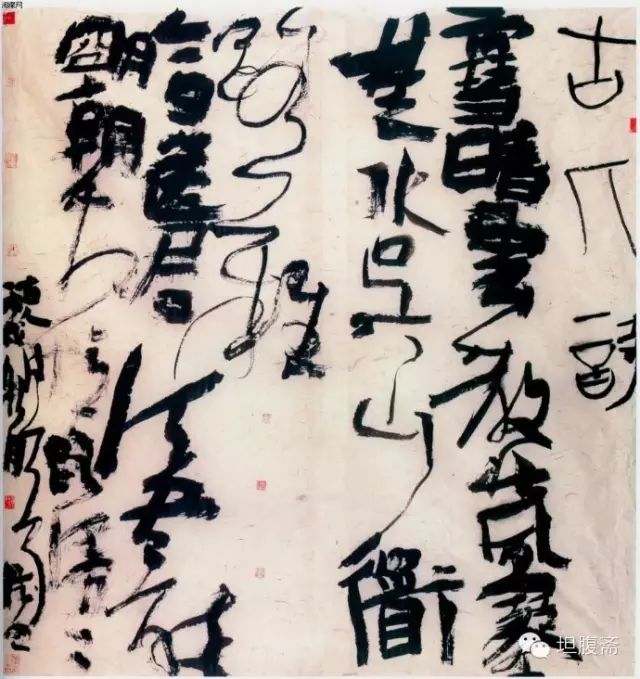 古人詩
雪晴雲散北風寒
楚水吴山衟
路難
今日送君須盡醉
明朝相憶路漫漫
坦腹斋